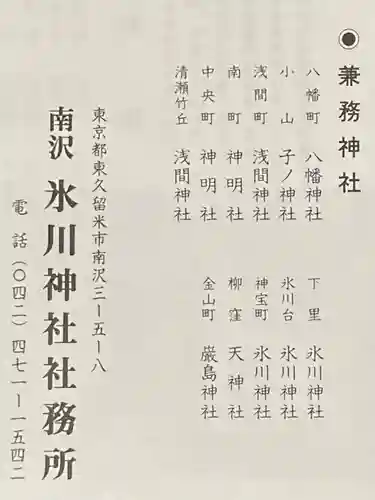 ◉兼務神社
八幡町 八幡神社
小山 子ノ神社
浅間町 浅間神社
南町 神明社
中央町 神明社
清瀬竹丘 浅間神社
下里 氷川神社
氷川台 氷川神社
神宝町 氷川神社
柳窪 天神社
金山町 厳島神社
東京都東久留米市南沢三ー五ー八
南沢 氷川神社社務所
電話(〇四二)四七一ー一五四二